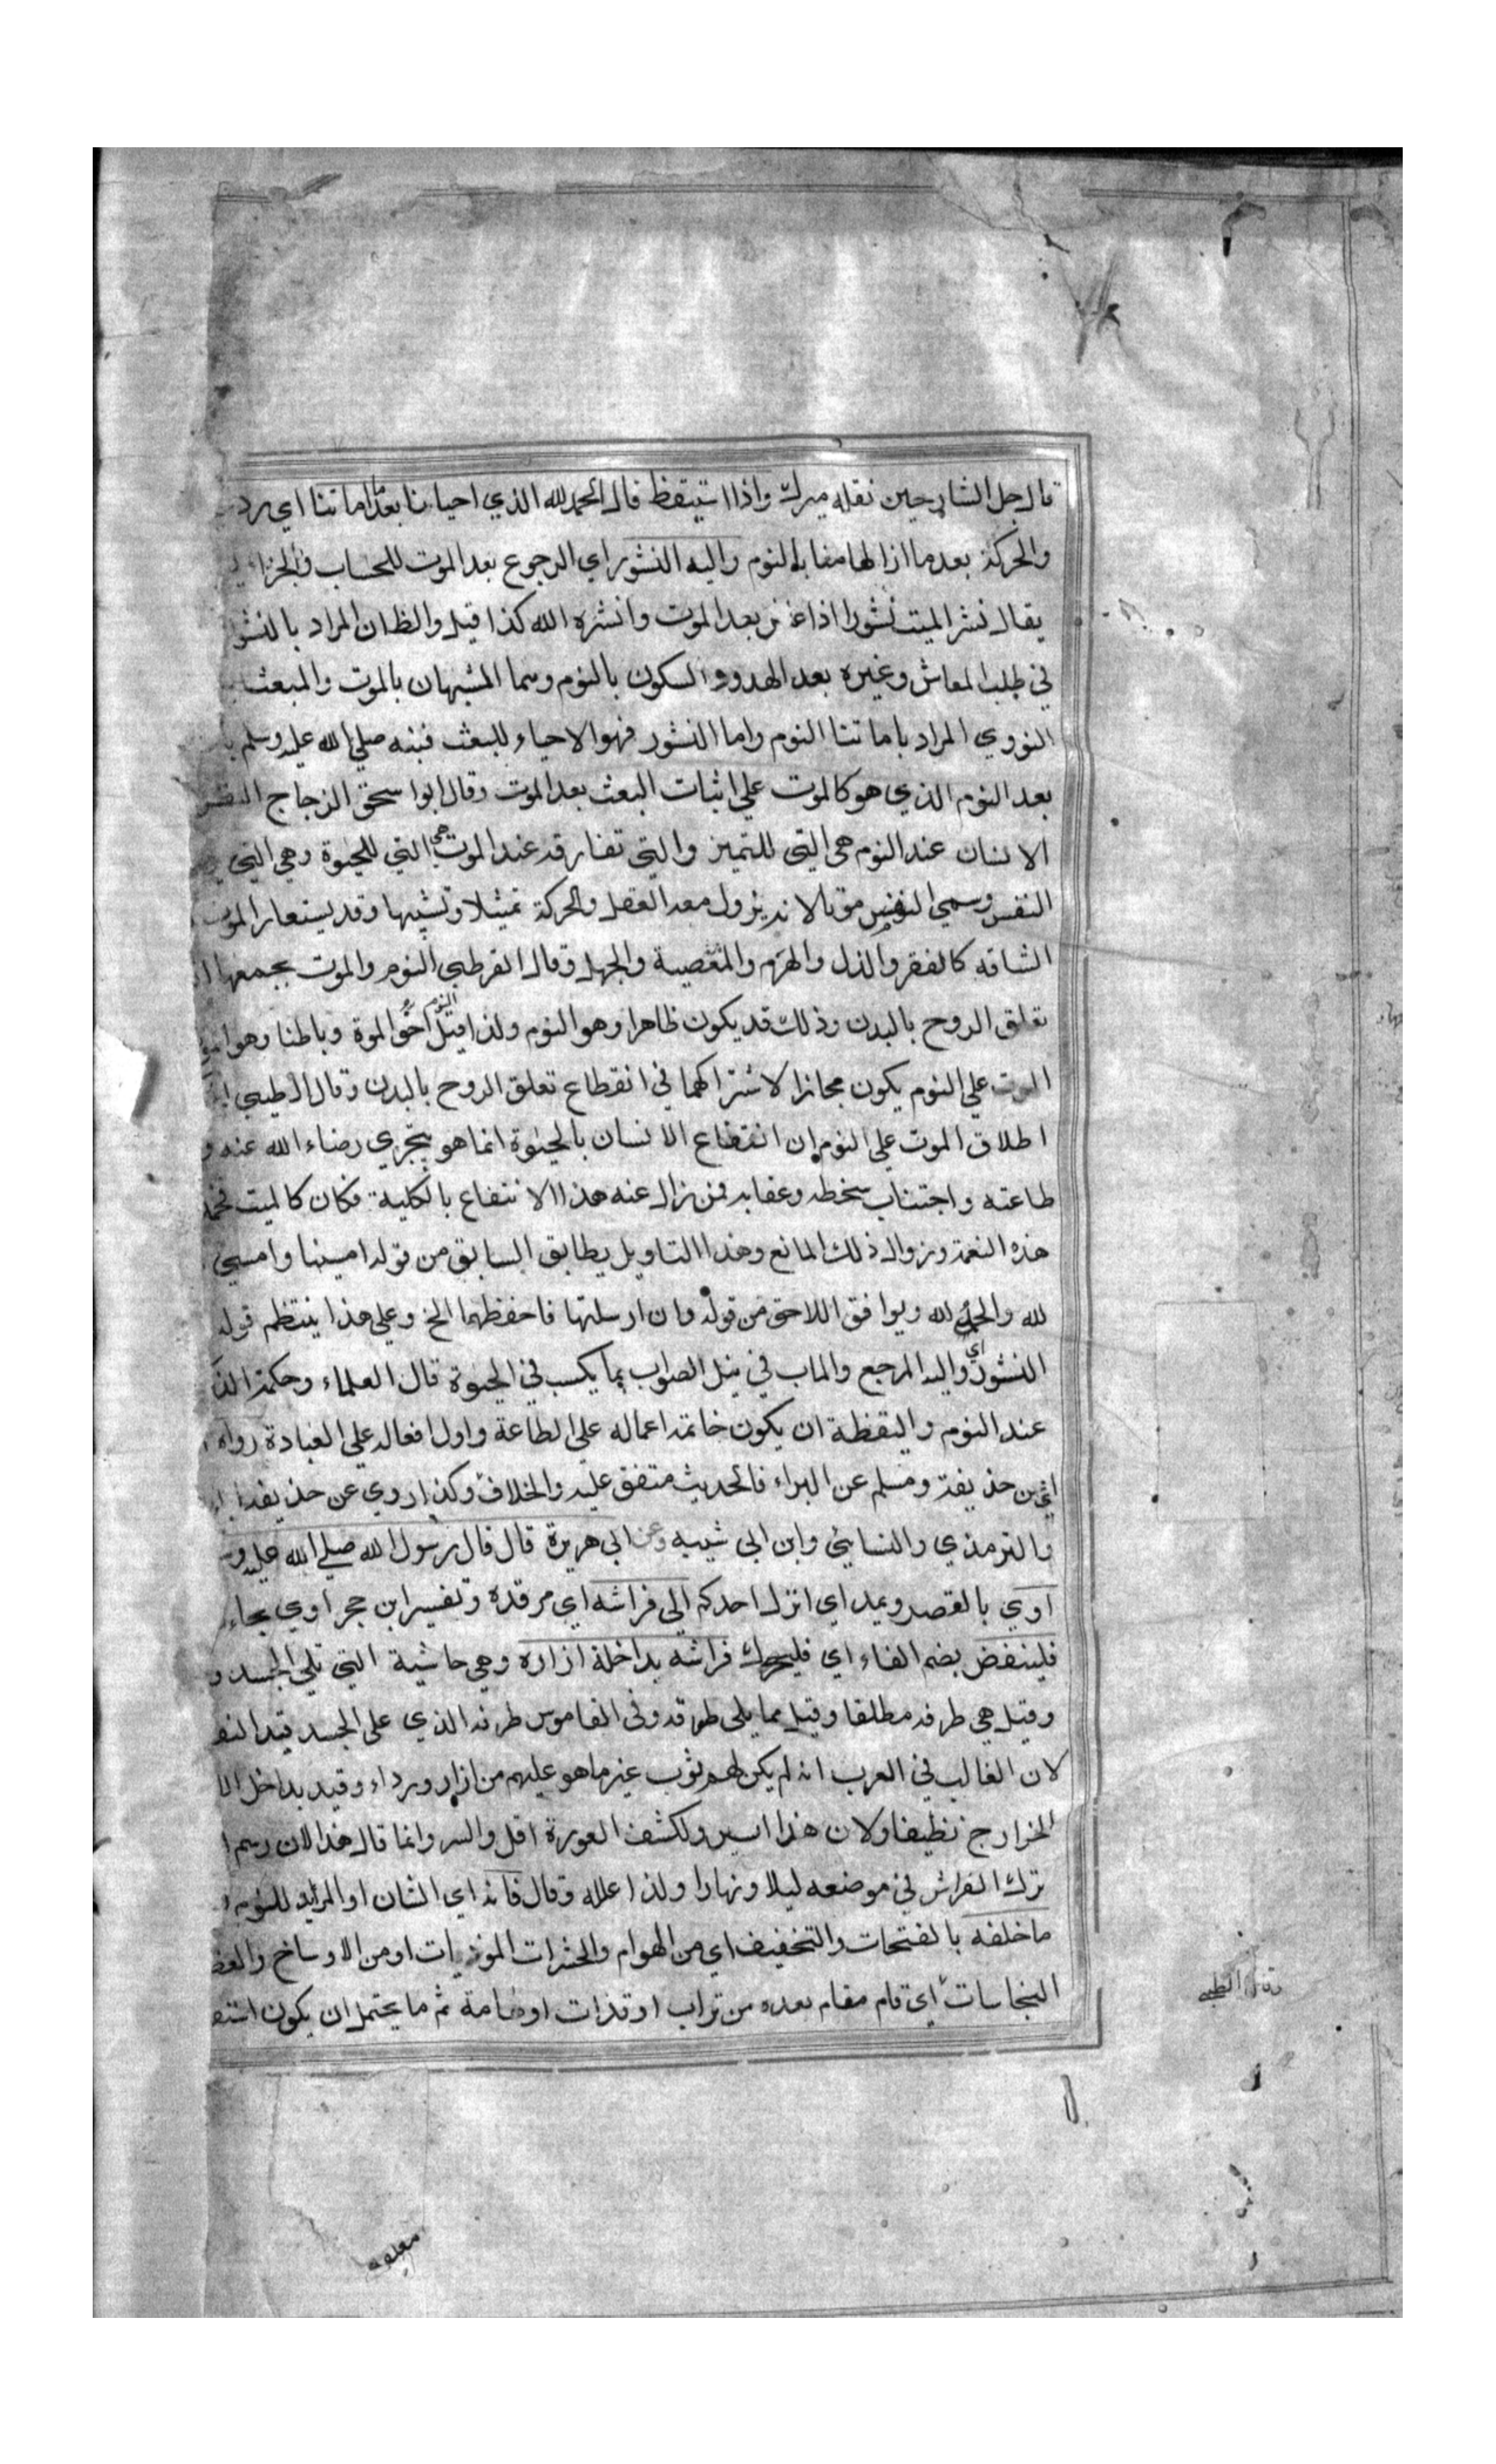 قال جل الشارحين نقله ميرك واذا استيقظ قال الحمد لله الذي احيانا بعد ما اماتنا اي رد
والحركة بعد ما ازالهما مقابلة النوم واليه النشور اي الرجوع بعد الموت للحساب والجزاء
يقال نشر الميت نشورا اذا عاش بعد الموت وانشره الله كذا قيل والظان المراد بالنشو
في طلب المعاش وغيره بعد الهدوو السكون بالنوم وسما المشبهان بالموت والمبعث
النووي المراد باماتنا النوم واما النشور فهو الاحياء للبعث فنبه صلي الله عليه وسلم
بعد النوم الذي هو كالموت علي اثبات البعث بعد الموت وقال ابوا سحق الزجاج النفس
الانسان عند النوم هي التي للتميز والتي تفارقه عند الموت هي التي للحيوة وهي التي
النفس وسمي النوم موتا لانه يزول معه العقل والحركة تمثيلا وتشبيها وقد يستعار الموت
الشاقه كالفقر والذل والهرم والمعصية والجهل وقال القرطبي النوم والموت يجمعهما
تعلق الروح بالبدن وذلك قد يكون ظاهرا وهو النوم ولذا قيل النوم اخو الموة وباطنا وهو
الموت علي النوم يكون مجازا لاشتراكهما في انقطاع تعلق الروح بالبدن وقال الطيبي
اطلاق الموت علي النوم ان انتفاع الانسان بالحيوة انما هو بتحري رضاء الله عنه و
طاعته واجتناب سخطه وعقابه فمن زال عنه هذا الانتفاع بالكلية فكان كالميت فحمد
هذه النعمة وزوال ذلك المانع وهذا التاويل يطابق السابق من قوله امسينا وامسي
لله والحمد لله ويوافق اللاحق من قوله وان ارسلتها فاحفظهما الخ وعلي هذا ينتظم قوله
النشور اي واليه المرجع والماب في نيل الصواب بما يكسب في الحيوة قال العلماء وحكمة الذ
عند النوم واليقظة ان يكون خاتمة اعماله علي الطاعة واول افعاله علي العبادة رواه
اي من حذيفة ومسلم عن البراء فالحديث متفق عليه والخلاف وكذا روي عن حذيفة
والترمذي والنسائي وابن ابي شيبه وعن ابي هريرة قال قال رسول الله صلي الله عليه و
اوي بالقصر ويمد اي انزل احدكم الي فراشه اي مرقده وتفسير ابن حجر اوي بجاء
فلينفض بضم الفاء اي فليحرك فراشه بداخلة ازاره وهي حاشية التي تلي الجسد و
وقيل هي طرفه مطلقا وقيل مما يلي طوقه وفي القاموس طرفه الذي علي الجسد قيد النف
لان الغالب في العرب انه لم يكن لهم ثوب غير ما هو عليهم من ازار ورداء وقيد بداخل الا
الخارج نظيفا ولان هذا ايسر ولكشف العورة اقل واستر وانما قال هذا لان رسم ا
ترك الفراش في موضعه ليلا ونهارا ولذا علله وقال فانه اي الشان او المريد للنوم
ما خلفه بالفتحات والتخفيف اي من الهوام والحشرات الموذيات او من الاوساخ والعظ
النجاسات اي قام مقام بعده من تراب او قذات او هامة ثم ما يحتمل ان يكون استف
وقال الطيبي